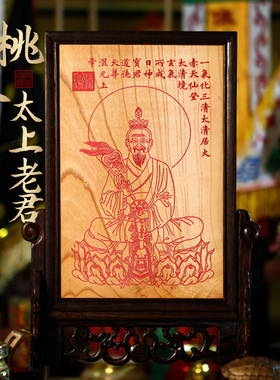 桃
太上老君
一氣化三清太清居火
赤天仙登
太清境
玄氣
所成
日神
寶君
道德
天尊
混元上
帝